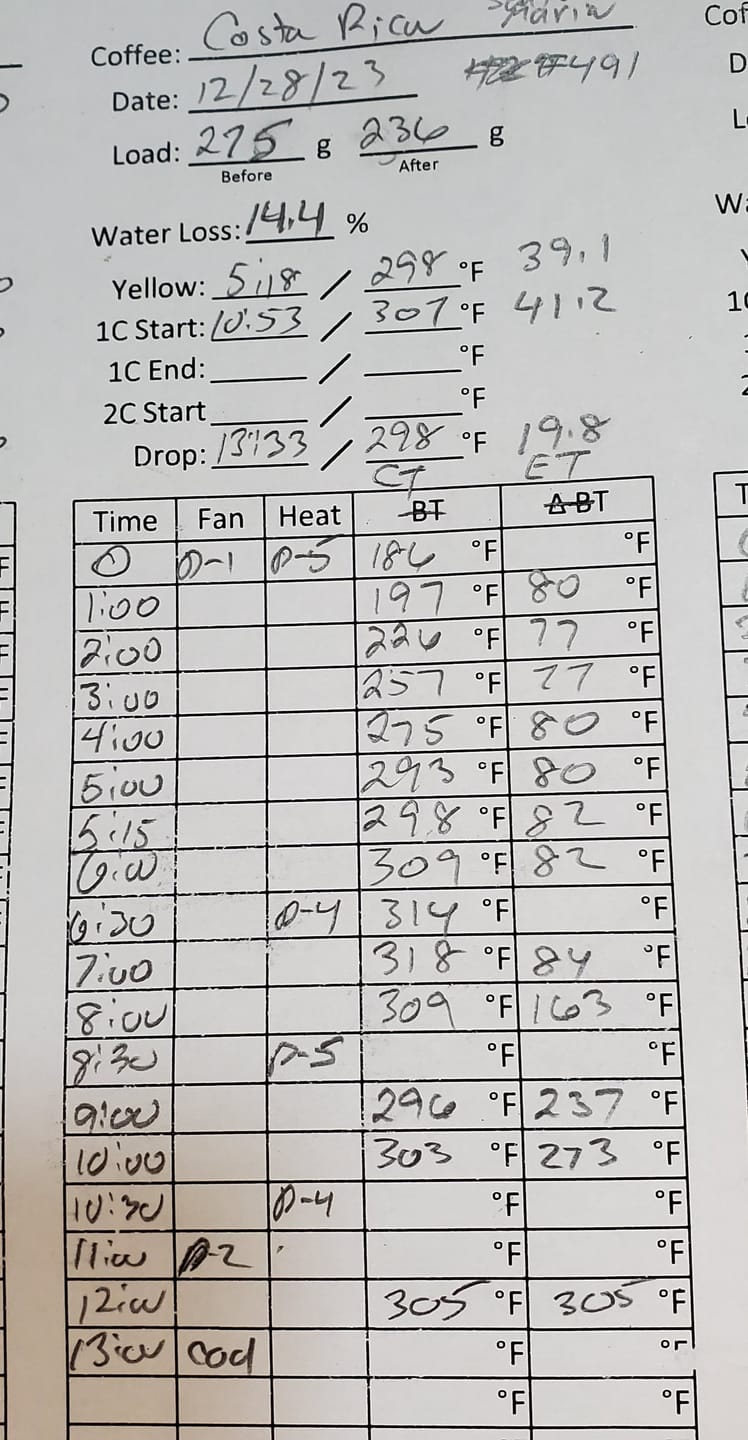 Coffee: Costa Rica Maria
Date: 12/28/23 491
Load: 275 g 236 g
Before After
Water Loss: 14.4 %
Yellow: 5:18 / 298 °F 39.1
1C Start: 10:53 / 307 °F 41.2
1C End: / °F
2C Start / °F
Drop: 13:33 / 298 °F 19.8
CT ET
Time Fan Heat BT ΔBT
0 P-1 P-5 186 °F °F
1:00 197 °F 80 °F
2:00 226 °F 77 °F
3:00 257 °F 77 °F
4:00 275 °F 80 °F
5:00 293 °F 80 °F
5:15 298 °F 82 °F
6:00 309 °F 82 °F
6:30 P-4 314 °F °F
7:00 318 °F 84 °F
8:00 309 °F 163 °F
8:30 P-5 °F °F
9:00 296 °F 237 °F
10:00 303 °F 273 °F
10:30 P-4 °F °F
11:00 P-2 °F °F
12:00 305 °F 305 °F
13:00 cool °F °F
°F °F